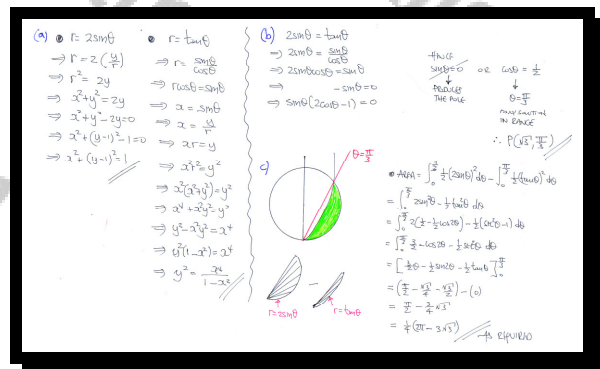 (a) • r = 2sinθ
⇒ r = 2(y/r)
⇒ r² = 2y
⇒ x²+y² = 2y
⇒ x²+y²-2y=0
⇒ x²+(y-1)²-1=0
⇒ x²+(y-1)²=1
• r = tanθ
⇒ r = sinθ/cosθ
⇒ rcosθ = sinθ
⇒ x = sinθ
⇒ x = y/r
⇒ xr = y
⇒ x²r² = y²
⇒ x²(x²+y²) = y²
⇒ x⁴ + x²y² = y²
⇒ y² - x²y² = x⁴
⇒ y²(1-x²) = x⁴
⇒ y² = x⁴/(1-x²)
(b) 2sinθ = tanθ
⇒ 2sinθ = sinθ/cosθ
⇒ 2sinθcosθ = sinθ
⇒ - sinθ = 0
⇒ sinθ(2cosθ-1) = 0
HENCE
sinθ=0 OR cosθ = 1/2
PRODUCES THE POLE
θ = π/3
ONLY SOLUTION
IN RANGE
∴ P(√3, π/3)
c)
θ = π/3
r = 2sinθ
r = tanθ
• AREA = ∫₀^(π/3) 1/2(2sinθ)² dθ - ∫₀^(π/3) 1/2(tanθ)² dθ
= ∫₀^(π/3) 2sin²θ - 1/2tan²θ dθ
= ∫₀^(π/3) 2(1/2 - 1/2cos2θ) - 1/2(sec²θ-1) dθ
= ∫₀^(π/3) 3/2 - cos2θ - 1/2sec²θ dθ
= [3/2θ - 1/2sin2θ - 1/2tanθ]₀^(π/3)
= (π/2 - √3/4 - √3/2) - (0)
= π/2 - 3/4√3
= 1/4(2π - 3√3)
AS REQUIRED